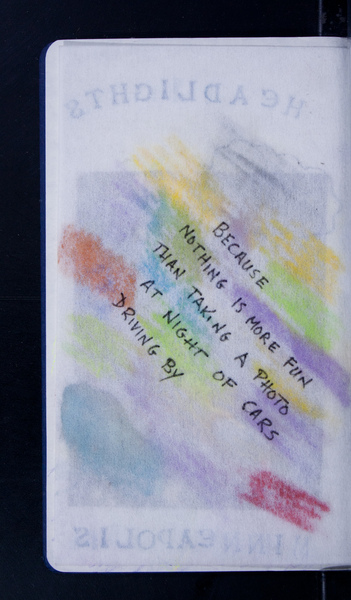 HEADLIGHTS
BECAUSE
NOTHING IS MORE FUN
THAN TAKING A PHOTO
AT NIGHT OF CARS
DRIVING BY
MINNEAPOLIS